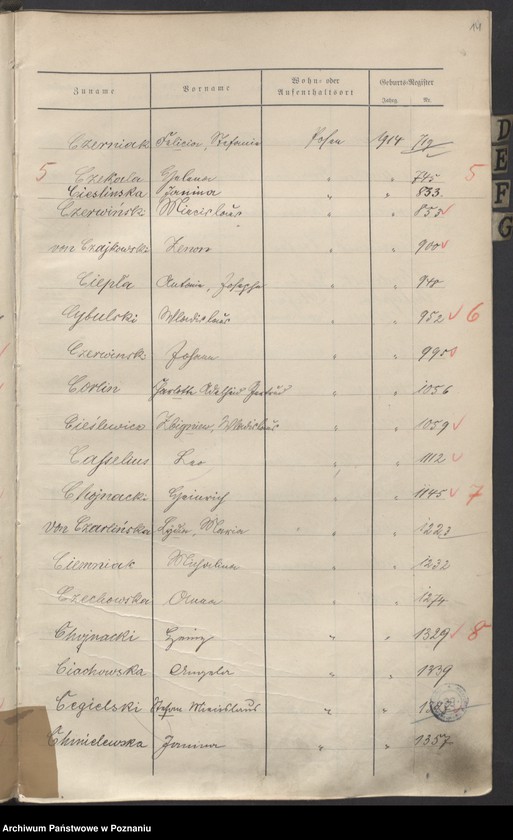 14
Zuname Vorname Wohn- oder Aufenthaltsort Geburts-Register
Jahrg. Nr.
Czerniak Felicia, Stefanie Posen 1914 719
5 Czekala Helena " " 745 5
Cieslinska Janina " " 833.
Czerwinski Miecislaus " " 853
von Czajkowski Zenon " " 900
Ciepła Antonie, Josepha " " 940
Cybulski Wladislaus " " 952 6
Czerwinski Johann " " 995
Corlin Charlotte Adelheid Gertrud " " 1056
Cieślewicz Zbigniew, Wladislaus " " 1059
Casselius Leo " " 1112
Chojnacki Heinrich " " 1145 7
von Czarlińska Lydia, Maria " " 1223
Ciemniak Michalina " " 1232
Czechowska Anna " " 1274
Chojnacki Heinz " " 1329 8
Ciachowska Angela " " 1339
Cegielski Stefan Miecislaus " "
Chmielewska Janina " " 1357
D
E
F
G
Archiwum Państwowe w Poznaniu